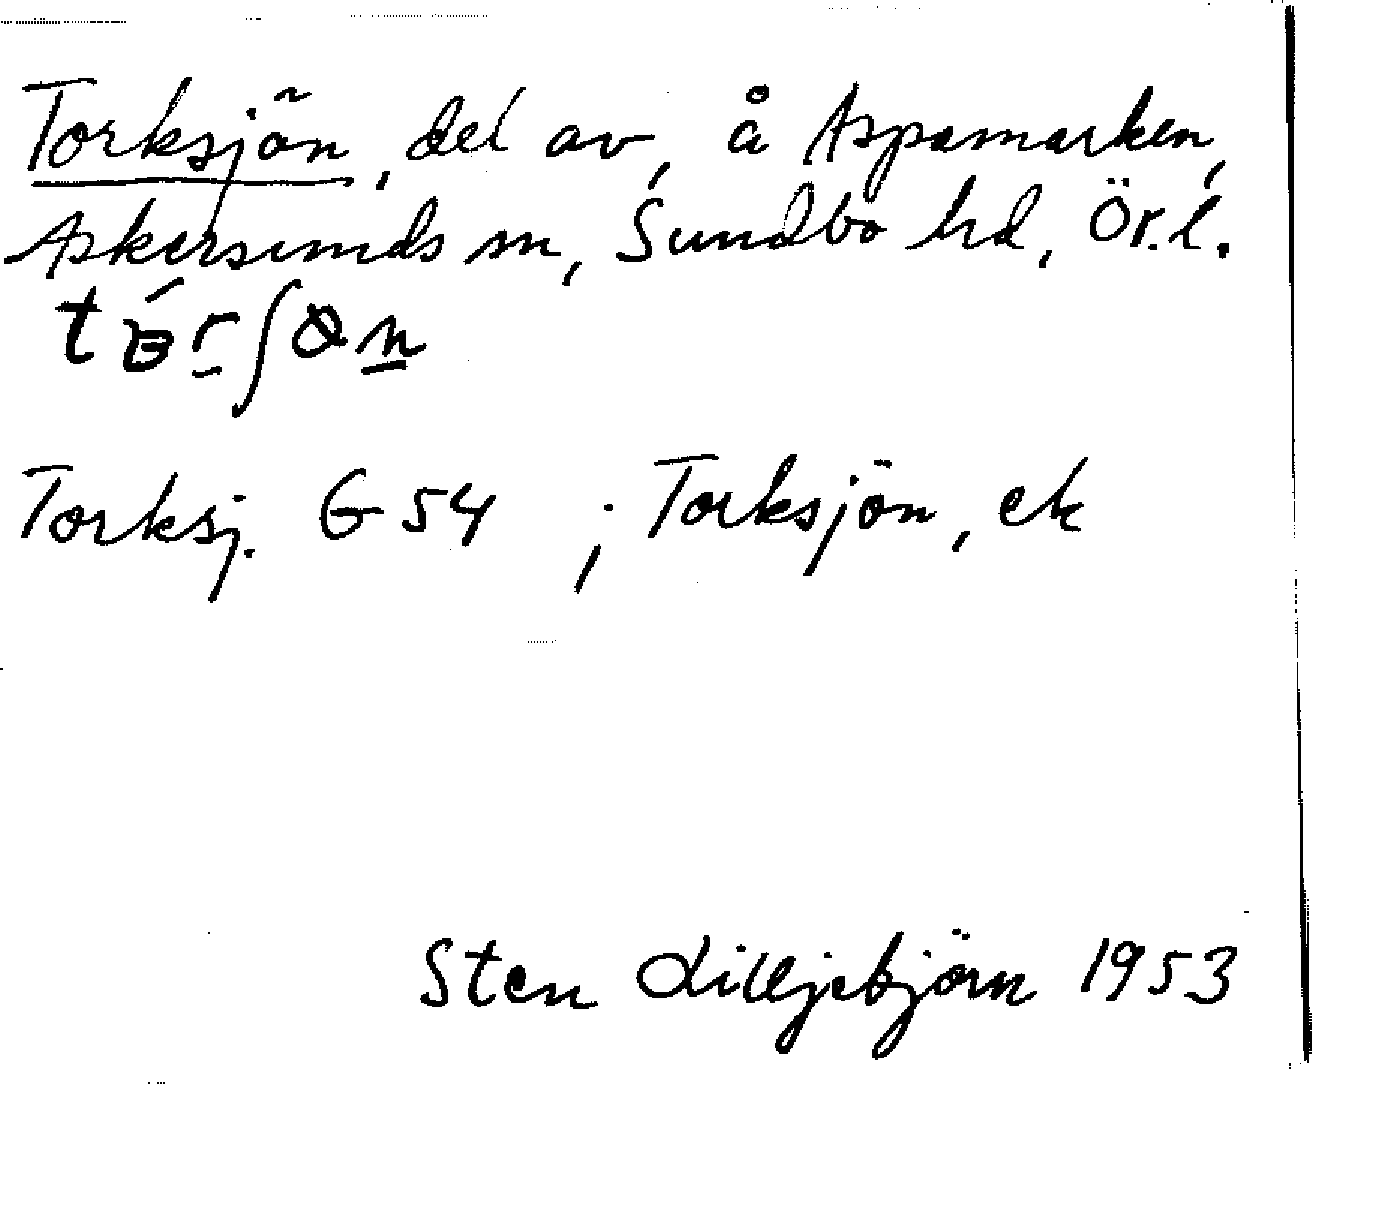 Torksjön, del av, å Aspamarken,
Askersunds sn, Sundbo hd, Ör.l.
Torksj. G 54 ; Torksjön, ek
Sten Lilljebjörn 1953